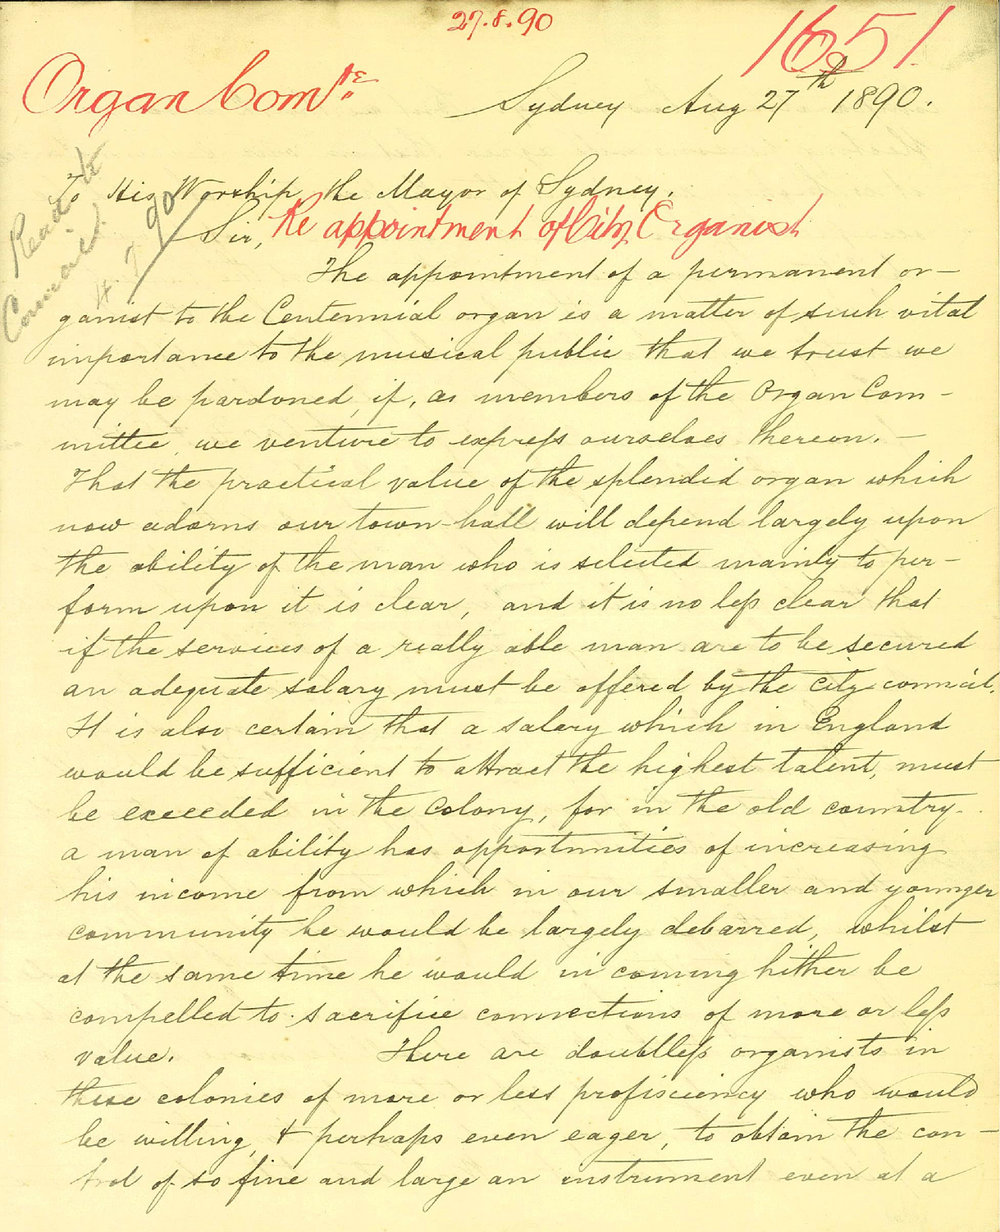 27.8.90
1651
Organ Com^tee
Sydney Aug 27th 1890.
Read to
Council
4.9.90
To His Worship, the Mayor of Sydney.
Sir,
Re appointment of City Organist
The appointment of a permanent or-
ganist to the Centennial organ is a matter of such vital
importance to the musical public that we trust we
may be pardoned, if, as members of the Organ Com-
mittee, we venture to express ourselves thereon. -
That the practical value of the splendid organ which
now adorns our town-hall will depend largely upon
the ability of the man who is selected mainly to per-
form upon it is clear, and it is no less clear that
if the services of a really able man are to be secured
an adequate salary must be offered by the city council.
It is also certain that a salary which in England
would be sufficient to attract the highest talent, must
be exceeded in the colony, for in the old country
a man of ability has opportunities of increasing
his income from which in our smaller and younger
community he would be largely debarred, whilst
at the same time he would in coming hither be
compelled to sacrifice connections of more or less
value. There are doubtless organists in
these colonies of more or less profisciency who would
be willing, & perhaps even eager, to obtain the con-
trol of so fine and large an instrument even at a